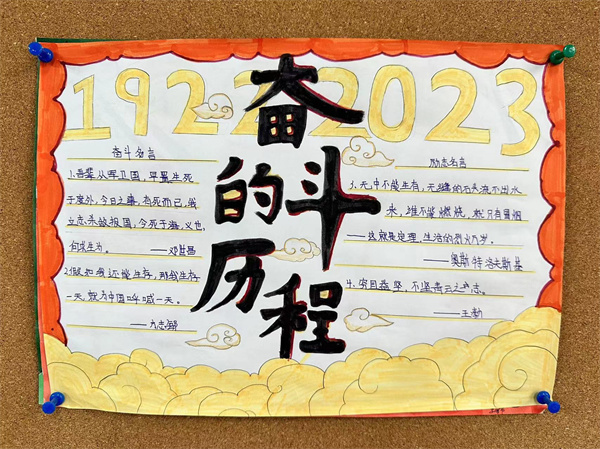 1922 2023
奋斗的历程
奋斗名言
1.吾辈从军卫国,早置生死
于度外,今日之事,有死而已,我
立志杀敌报国,今死于海,义也,
何求生为。 ——邓世昌
2.假如我还能生存,那我生存
一天,就为中国呼喊一天。
——方志敏
励志名言
3.无中不能生有,无缝的石头流不出水
来,谁不能燃烧,就只有冒烟
——这就是定理,生活的烈火万岁。
——奥斯特洛夫斯基
4.穷且益坚,不坠青云之志。
——王勃